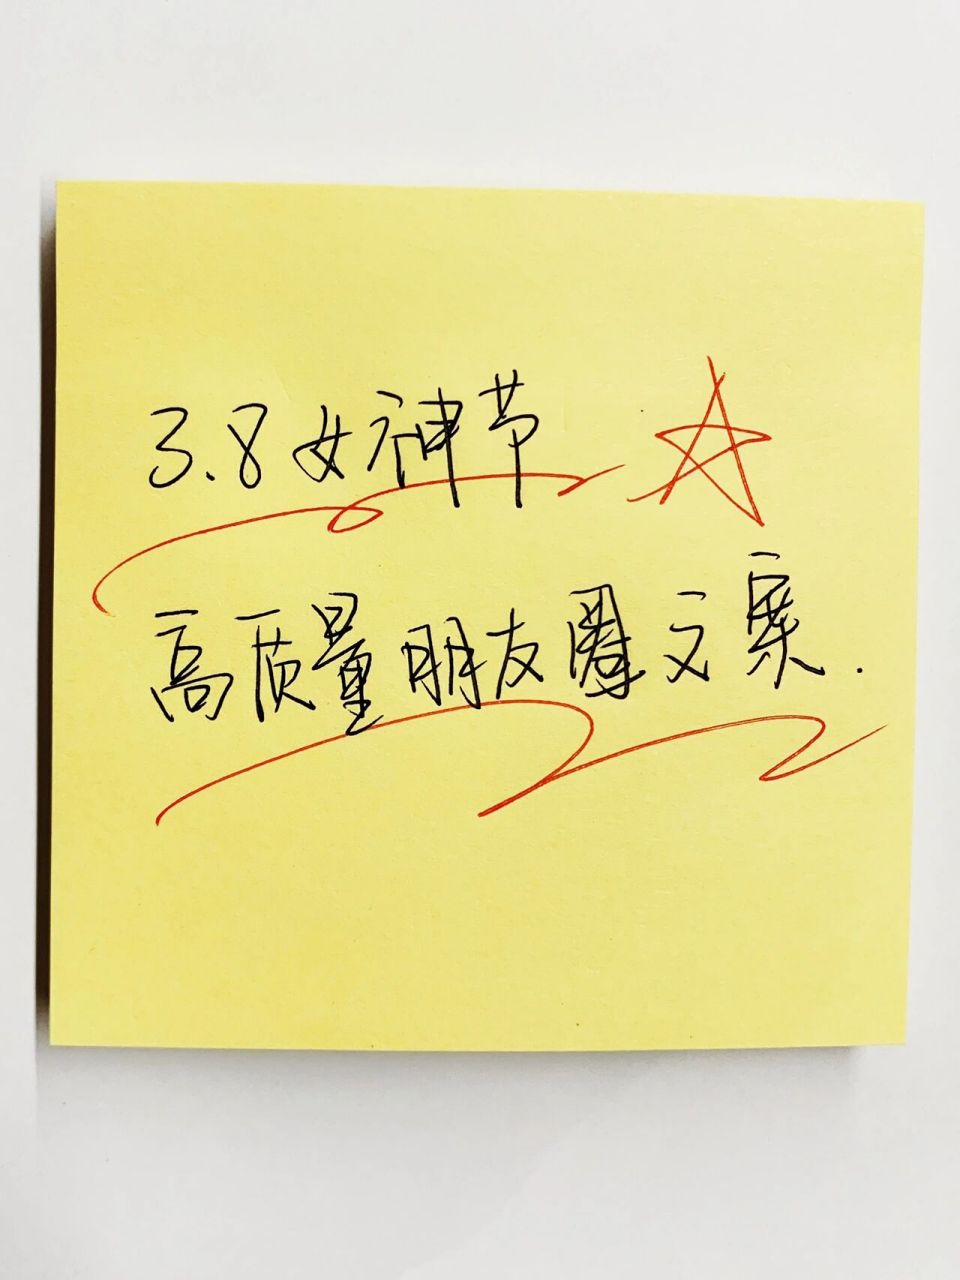 3.8女神节
高质量朋友圈文案.